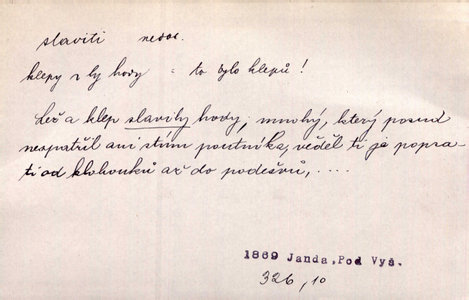 slaviti nedok.
klepy sly hody = to bylo klepů!
Lež a klep slavily hody, mnohý, který posud
nespatřil ani stín poutníka, věděl ti je popsa-
ti od klobouků až do podešvů, ....
1869 Janda, Pod Vyš.
326, 10